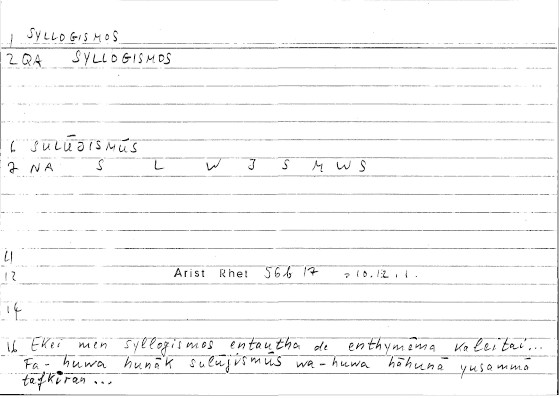 1 SYLLOGISMOS
2 QA SYLLOGISMOS
6 SULŪJISMŪS
7 NA S L W J S M W S
11
12 Arist Rhet 56b 17 = 10.12.1.
14
16 Ekei men syllogismos entautha de enthymēma kaleitai...
Fa-huwa hunāk sulūjismūs wa-huwa hāhunā yusammā
tafkīran...